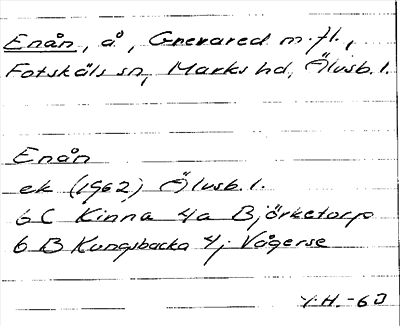 Enån, å, Grevared m.fl.,
Fotskäls sn, Marks hd, Älvsb. l.
Enån
ek (1962) Älvsb. l.
6 C Kinna 4a Björketorp
6 B Kungsbacka 4j Vågerse
Y.H. -63